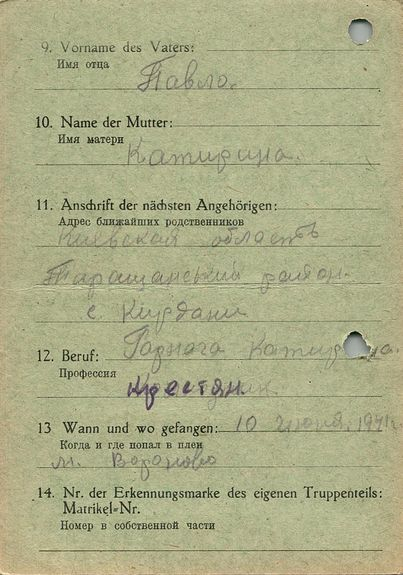 9. Vorname des Vaters:
Имя отца
Павло.
10. Name der Mutter:
Имя матери
Катирина.
11. Anschrift der nächsten Angehörigen:
Адрес ближайших родственников
Киевская область
Таращанський район.
с Кирдани
12. Beruf: Горнога Катирина.
Профессия
Крестян.
13 Wann und wo gefangen: 10 июня. 1941г
Когда и где попал в плен
м. Вороново
14. Nr. der Erkennungsmarke des eigenen Truppenteils:
Matrikel=Nr.
Номер в собственной части